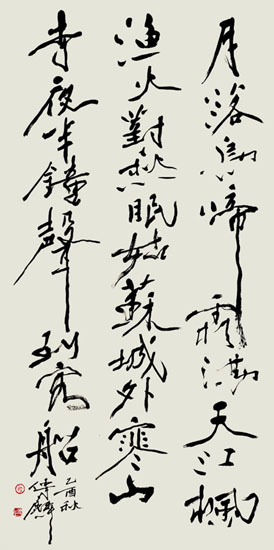 月落烏啼霜滿天江楓
漁火對愁眠姑蘇城外寒山
寺夜半鐘聲到客船
乙酉秋